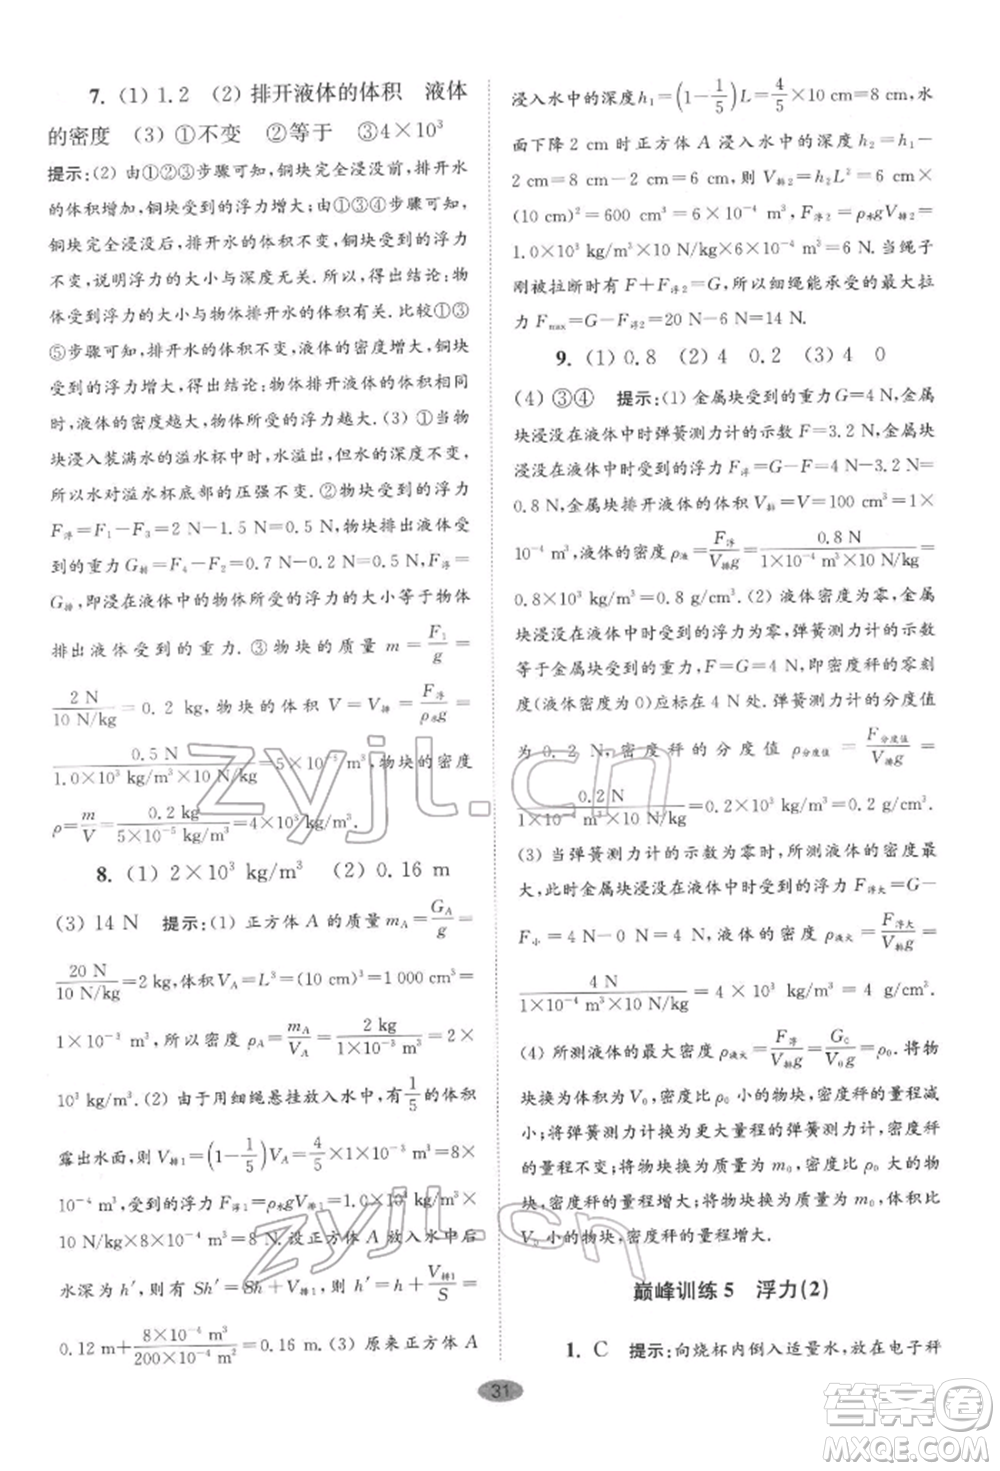 7. (1) 1.2 (2) 排开液体的体积 液体
的密度 (3) ①不变 ②等于 ③4×10³
提示:(2) 由①②③步骤可知,铜块完全浸没前,排开水
的体积增加,铜块受到的浮力增大;由①③④步骤可知,
铜块完全浸没后,排开水的体积不变,铜块受到的浮力
不变,说明浮力的大小与深度无关.所以,得出结论:物
体受到浮力的大小与物体排开水的体积有关.比较①③
⑤步骤可知,排开水的体积不变,液体的密度变大,铜块
受到的浮力增大,得出结论:在物体排开液体的体积相同
时,液体的密度越大,物体所受的浮力越大.(3) ①当物
块浸入装满水的溢水杯中时,水的密度、水的深度不变,
所以水对溢水杯底部的压强不变.②物块受到的浮力
F浮=F₁-F₃=2 N-1.5 N=0.5 N,物块排出液体受
到的重力G排=F₄-F₂=0.7 N-0.2 N=0.5 N,F浮=
G排,即浸在液体中的物体所受的浮力的大小等于物体
排出液体受到的重力.③物块的质量 m=F₁/g=
2 N/10 N/kg=0.2 kg,物块的体积 V=V排=F浮/ρ水g=
0.5 N/1.0×10³ kg/m³×10 N/kg=5×10⁻⁵ m³,物块的密度
ρ=m/V=0.2 kg/5×10⁻⁵ m³=4×10³ kg/m³.
8. (1) 2×10³ kg/m³ (2) 0.16 m
(3) 14 N 提示:(1) 正方体 A 的质量 mA=GA/g=
20 N/10 N/kg=2 kg,体积 VA=L³=(10 cm)³=1 000 cm³=
1×10⁻³ m³,所以密度 ρA=mA/VA=2 kg/1×10⁻³ m³=2×
10³ kg/m³.(2) 由于用细绳悬挂放入水中,有1/5的体积
露出水面,则 V排1=(1-1/5)VA=4/5×10⁻³ m³=8×
10⁻⁴ m³,受到的浮力 F浮1=ρ水gV排1=1.0×10³ kg/m³×
10 N/kg×8×10⁻⁴ m³=8 N.设正方体 A 放入水中后
水深为 h′,则有 Sh′=Sh+V排1,即 h′=h+V排1/S=
0.12 m+8×10⁻⁴ m³/200×10⁻⁴ m²=0.16 m.(3) 原来正方体 A
浸入水中的深度 h₁=(1-1/5)L=4/5×10 cm=8 cm,水
面下降 2 cm 时正方体 A 浸入水中的深度 h₂=h₁-
2 cm=8 cm-2 cm=6 cm,则 V排2=h₂L²=6 cm×
(10 cm)²=600 cm³=6×10⁻⁴ m³,F浮2=ρ水gV排2=
1.0×10³ kg/m³×10 N/kg×6×10⁻⁴ m³=6 N.当绳子
刚被拉断时有 F+F浮2=G,所以,细绳能承受的最大拉
力 Fmax=G-F浮2=20 N-6 N=14 N.
9. (1) 0.8 (2) 4 0.2 (3) 4 0
(4) ③④ 提示:(1) 金属块受到的重力 G=4 N,金属
块浸没在液体中时弹簧测力计的示数 F=3.2 N,金属块
浸没在液体中时受到的浮力 F浮=G-F=4 N-3.2 N=
0.8 N,金属块排开液体的体积 V排=V=100 cm³=1×
10⁻⁴ m³,液体的密度 ρ液=F浮/V排g=0.8 N/1×10⁻⁴ m³×10 N/kg=
0.8×10³ kg/m³=0.8 g/cm³.(2) 液体密度为零,金属
块浸没在液体中时受到的浮力为零,弹簧测力计的示数
等于金属块受到的重力,F=G=4 N,即密度秤的零刻
度(液体密度为0)应标在 4 N 处.弹簧测力计的分度值
为 0.2 N,密度秤的分度值 ρ分度值=F分度值/V排g=
0.2 N/1×10⁻⁴ m³×10 N/kg=0.2×10³ kg/m³=0.2 g/cm³.
(3) 当弹簧测力计的示数为零时,所测液体的密度最
大,此时金属块浸没在液体中时受到的浮力 F浮大=G-
F小=4 N-0 N=4 N,液体的密度 ρ液大=F浮大/V排g=
4 N/1×10⁻⁴ m³×10 N/kg=4×10³ kg/m³=4 g/cm³.
(4) 所测液体的最大密度 ρ液大=F浮/V排g=G₀/V₀g=ρ₀.将物
块换为体积为 V₀、密度比 ρ₀ 小的物块,密度秤的量程减
小;将弹簧测力计换为更大量程的弹簧测力计,密度秤的
量程不变;将物块换为质量为 m₀、密度比 ρ₀ 大的物
块,密度秤的量程增大;将物块换为质量为 m₀,体积比
V₀ 小的物块,密度秤的量程增大.
巅峰训练 5 浮力(2)
1. C 提示:向烧杯内倒入适量水,放在电子秤
31
zyjl.cn
zyjl.cn
答案圈
MXQE.COM